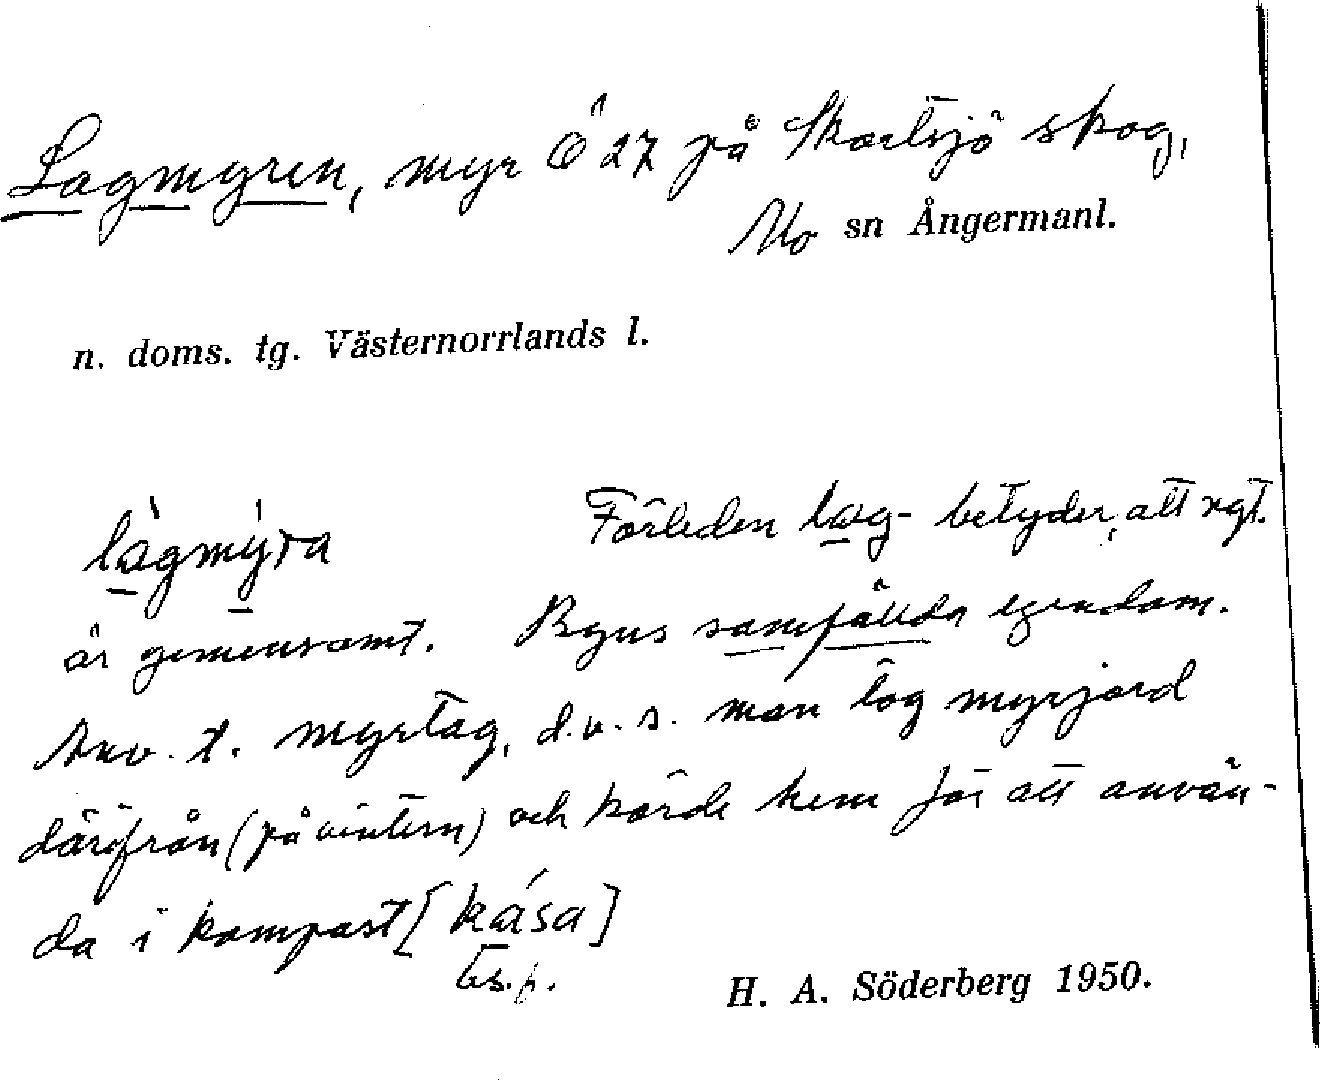 Lagmyren, myr Ö 27 på Skortsjö skog,
Mo sn Ångermanl.
n. doms. tg. Västernorrlands l.
làgmýra Förleden lag- betyder, att ngt.
är gemensamt. Byns samfällda egendom.
Anv. t. myrtag, d.v.s. man tog myrjord
därifrån (på vintern) och körde hem för att använ-
da i kompost [kása]
best. f.
H. A. Söderberg 1950.